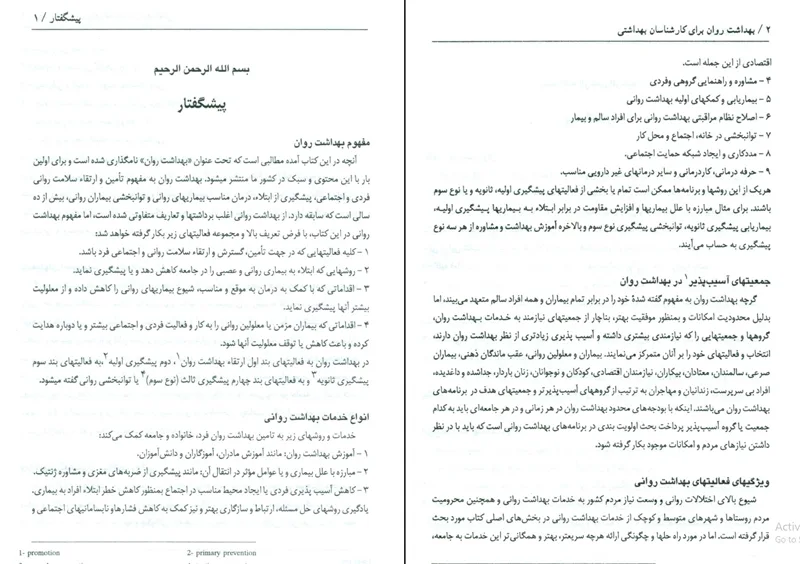 پیشگفتار / ۱
بسم الله الرحمن الرحیم
پیشگفتار
مفهوم بهداشت روان
آنچه در این کتاب آمده مطالبی است که تحت عنوان «بهداشت روان» نامگذاری شده است و برای اولین
بار با این محتوی و سبک در کشور ما منتشر میشود. بهداشت روان به مفهوم تأمین و ارتقاء سلامت روانی
فردی و اجتماعی، پیشگیری از ابتلاء، درمان مناسب بیماریهای روانی و توانبخشی بیماران روانی، بیش از ده
سالی است که سابقه دارد. از بهداشت روانی اغلب برداشتها و تعاریف متفاوتی شده است، اما مفهوم بهداشت
روانی در این کتاب، با فرض تعریف بالا و مجموعه فعالیتهای زیر بکار گرفته خواهد شد:
۱ - کلیه فعالیتهایی که در جهت تأمین، گسترش و ارتقاء سلامت روانی و اجتماعی فرد باشد.
۲ - روشهایی که ابتلاء به بیماری روانی و عصبی را در جامعه کاهش دهد و یا پیشگیری نماید.
۳ - اقداماتی که با کمک به درمان به موقع و مناسب، شیوع بیماریهای روانی را کاهش داده و از معلولیت
بیشتر آنها پیشگیری نماید.
۴ - اقداماتی که بیماران مزمن یا معلولین روانی را به کار و فعالیت فردی و اجتماعی بیشتر و یا دوباره هدایت
کرده و باعث کاهش یا توقف معلولیت آنها شود.
در بهداشت روان به فعالیتهای بند اول ارتقاء بهداشت روان۱، دوم پیشگیری اولیه۲، به فعالیتهای بند سوم
پیشگیری ثانویه۳ و به فعالیتهای بند چهارم پیشگیری ثالث (نوع سوم)۴ یا توانبخشی روانی گفته میشود.
انواع خدمات بهداشت روانی
خدمات و روشهای زیر به تامین بهداشت روان فرد، خانواده و جامعه کمک می‌کند:
۱ - آموزش بهداشت روان: مانند آموزش مادران، آموزگاران و دانش‌آموزان.
۲ - مبارزه با علل بیماری و یا عوامل مؤثر در انتقال آن: مانند پیشگیری از ضربه‌های مغزی و مشاوره ژنتیک.
۳ - کاهش آسیب پذیری فردی یا ایجاد محیط مناسب در اجتماع بمنظور کاهش خطر ابتلاء افراد به بیماری.
یادگیری روشهای حل مسئله، ارتباط و سازگاری بهتر و نیز کمک به کاهش فشارها و نابسامانیهای اجتماعی و
1- promotion
2- primary prevention
۲ / بهداشت روان برای کارشناسان بهداشتی
اقتصادی از این جمله است.
۴ - مشاوره و راهنمایی گروهی وفردی
۵ - بیماریابی و کمکهای اولیه بهداشت روانی
۶ - اصلاح نظام مراقبتی بهداشت روانی برای افراد سالم و بیمار
۷ - توانبخشی در خانه، اجتماع و محل کار
۸ - مددکاری و ایجاد شبکه حمایت اجتماعی.
۹ - حرفه درمانی، کاردرمانی و سایر درمانهای غیر دارویی مناسب.
هریک از این روشها و برنامه‌ها ممکن است تمام یا بخشی از فعالیتهای پیشگیری اولیه، ثانویه و یا نوع سوم
باشند. برای مثال مبارزه با علل بیماریها و افزایش مقاومت در برابر ابتلاء به بیماریها پیشگیری اولیه،
بیماریابی پیشگیری ثانویه، توانبخشی پیشگیری نوع سوم و بالاخره آموزش بهداشت و مشاوره از هر سه نوع
پیشگیری به حساب می‌آیند.
جمعیتهای آسیب‌پذیر۱ در بهداشت روان
گرچه بهداشت روان به مفهوم گفته شدهٔ خود را در برابر تمام بیماران و همه افراد سالم متعهد می‌بیند، اما
بدلیل محدودیت امکانات و بمنظور موفقیت بهتر، بناچار از جمعیتهای نیازمند به خدمات بهداشت روان،
گروهها و جمعیتهایی را که نیازمندی بیشتری داشته و آسیب پذیری زیادتری از نظر بهداشت روان دارند،
انتخاب و فعالیتهای خود را بر آنان متمرکز می‌نمایند. بیماران و معلولین روانی، عقب ماندگان ذهنی، بیماران
صرعی، سالمندان، معتادان، بیکاران، نیازمندان اقتصادی، کودکان و نوجوانان، زنان باردار، جداشده و داغدیده،
افراد بی سرپرست، زندانیان و مهاجران به ترتیب از گروههای آسیب‌پذیرتر و جمعیتهای هدف در برنامه‌های
بهداشت روان می‌باشند. اینکه با بودجه‌های محدود بهداشت روان در هر زمانی و در هر جامعه‌ای باید به کدام
جمعیت یا گروه آسیب‌پذیر پرداخت بحث اولویت بندی در برنامه‌های بهداشت روانی است که باید با در نظر
داشتن نیازهای مردم و امکانات موجود بکار گرفته شود.
ویژگیهای فعالیتهای بهداشت روانی
شیوع بالای اختلالات روانی و وسعت نیاز مردم کشور به خدمات بهداشت روانی و همچنین محرومیت
مردم روستاها و شهرهای متوسط و کوچک از خدمات بهداشت روانی در بخش‌های اصلی کتاب مورد بحث
قرار گرفته است. اما در مورد راه حلها و چگونگی ارائه هرچه سریعتر، بهتر و همگانی‌تر این خدمات به جامعه،
Activ
Go to S